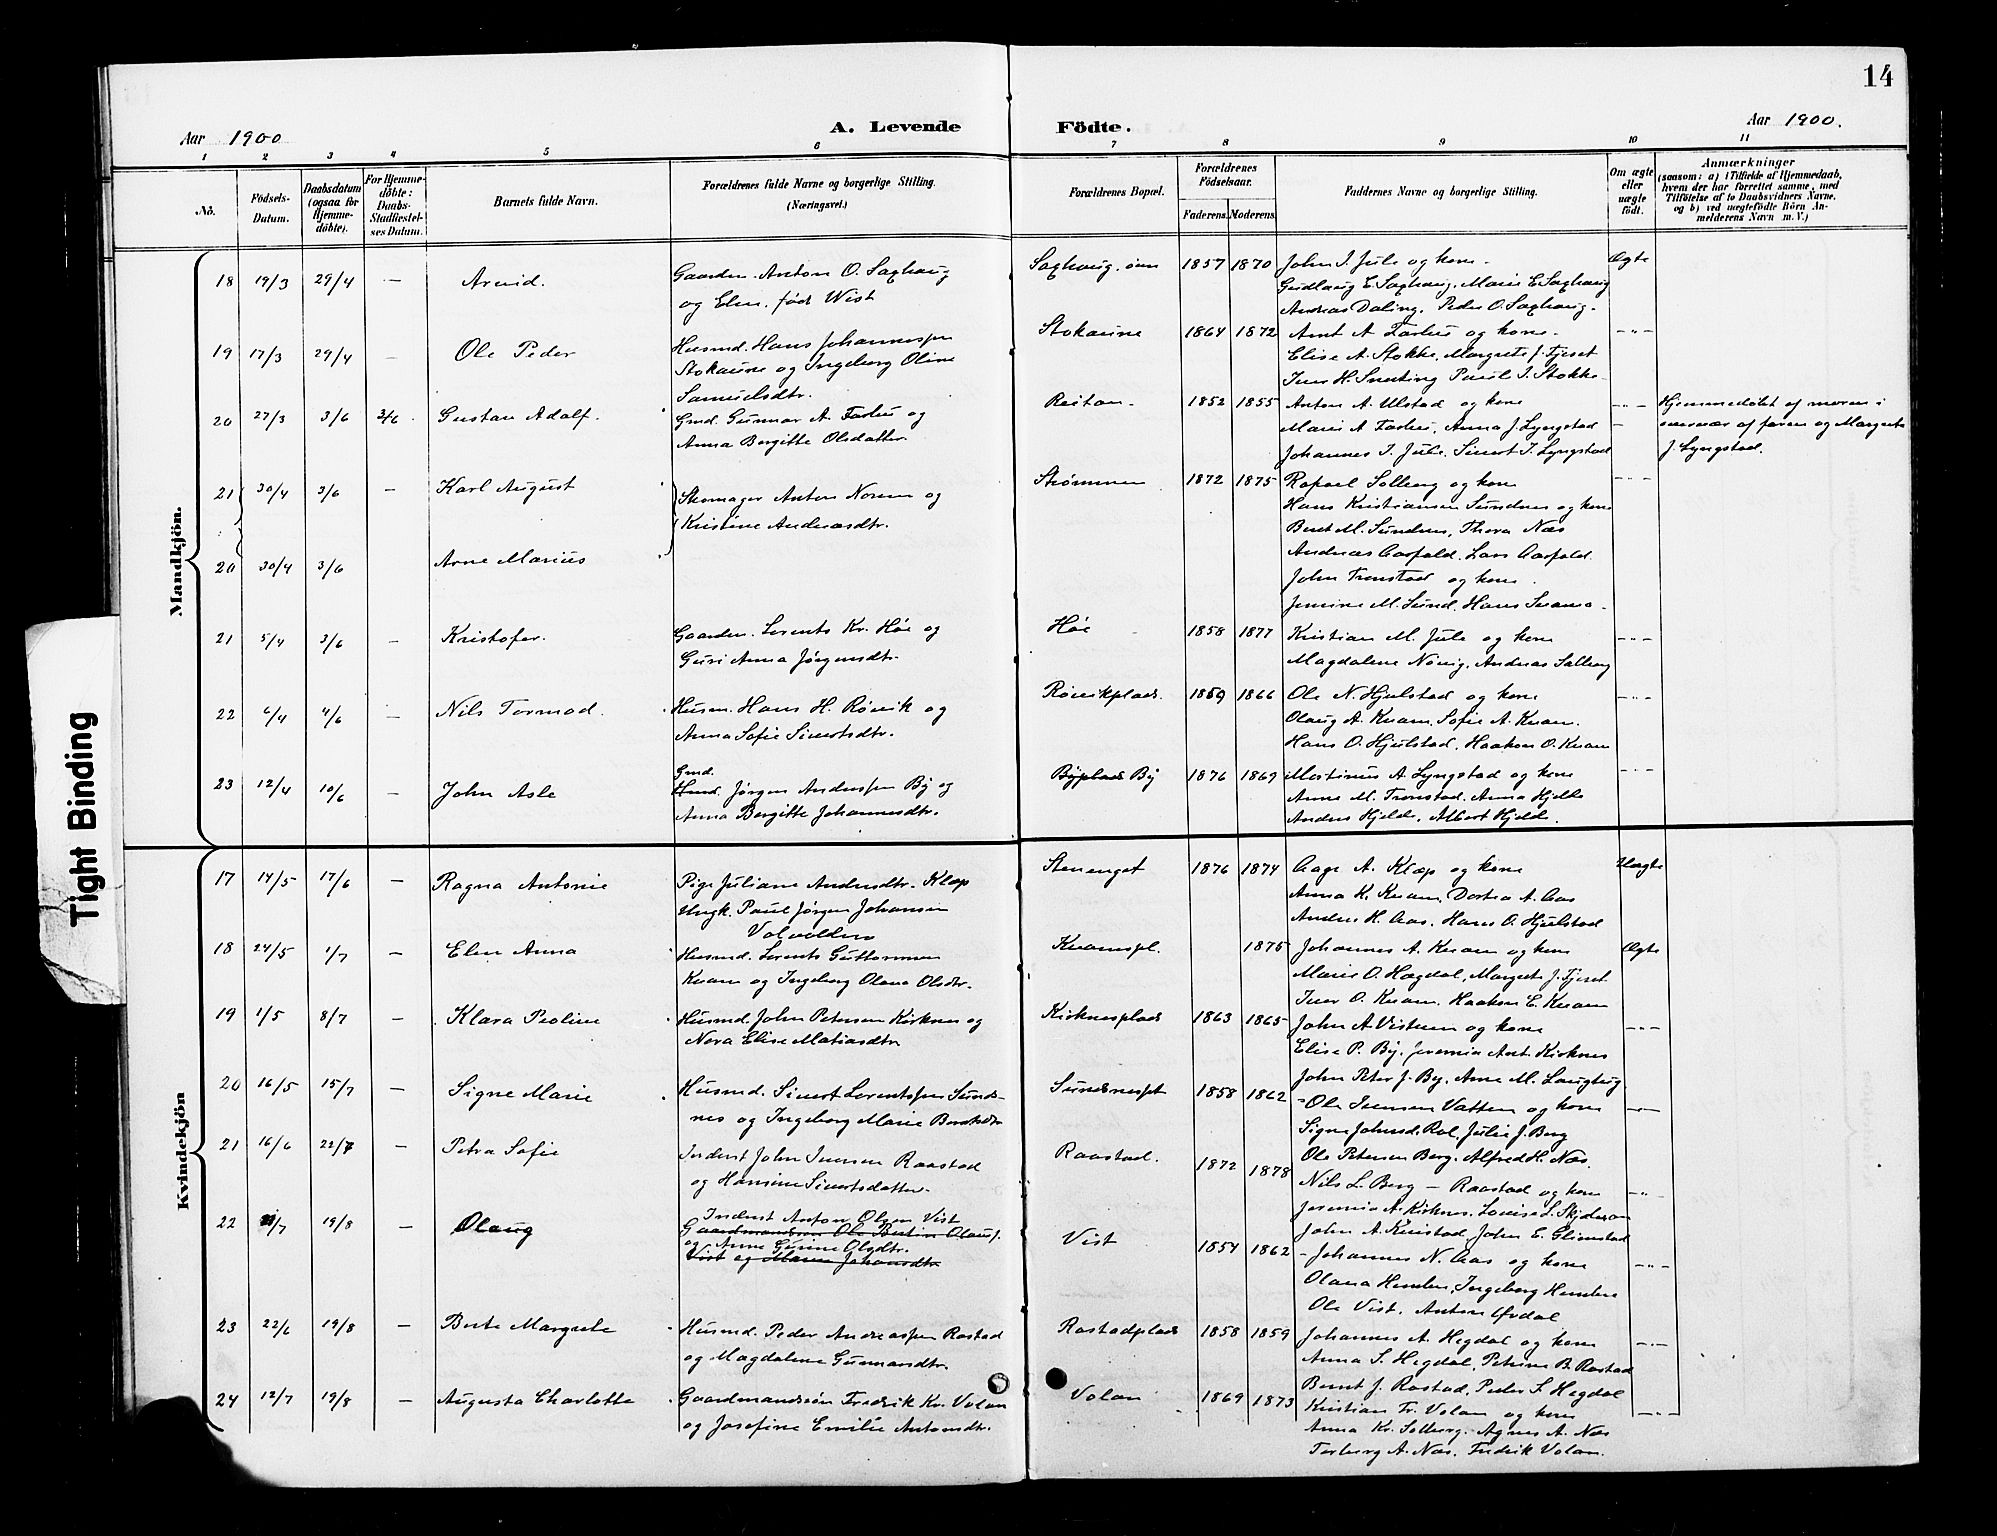 14
Aar 1900
A. Levende
Födte.
Aar 1900.
1 2 3 4 5 6 7 8 9 10 11
No.
Födsels-
Datum.
Daabsdatum
(ogsaa for
Hjemme-
döbte).
For Hjemme-
döbte:
Daabs-
Stadfæstel-
ses Datum.
Barnets fulde Navn.
Forældrenes fulde Navne og borgerlige Stilling.
(Næringsvei.)
Forældrenes Bopæl.
Forældrenes
Födselsaar.
Faderens. Moderens.
Faddernes Navne og borgerlige Stilling.
Om ægte
eller
uægte
født.
Anmærkninger
(saasom: a) i Tilfælde af Hjemmedaab,
hvem der har forrettet samme, med
Tilföielse af to Daabsvidners Navne,
og b) ved uægtefödte Börn An-
melderens Navn m. V.)
Mandkjön.
18 19/3 29/4 — Arvid.
Gaardm. Anton O. Saghaug
og Elen, født Wist
Saghaug, øvre 1857 1870
John I. Jule og kone.
Gudlaug E. Saghaug, Marie E. Saghaug
Andreas Daling, Peder O. Saghaug.
Ægte
19 17/3 29/4 — Ole Peder
Husmd. Hans Johannessen
Stokaune og Ingeborg Oline
Samuelsdtr.
Stokaune 1864 1872
Arnt A. Førhus og kone.
Elise A. Stokke, Margrete J. Tjeset
Iver H. Snerting Paul I. Stokke.
—"—
20 27/3 3/6 3/6 Gustav Adolf.
Gmd. Gunnar A. Forhus og
Anna Bergitte Olsdatter.
Reitan. 1852 1855
Anton A. Ulstad og kone
Marie A. Forhus, Anna J. Lyngstad
Johannes I. Jule, Sivert I. Lyngstad
—"—
Hjemmedøbt af moren i
overvær af faren og Margrete
J. Lyngstad.
21 30/4 3/6 — Karl August
Skomager Anton Normn og
Kristine Andreasdtr.
Strømmen 1872 1875
Rafael Solberg og kone
Hans Kristiansen Sundnes og kone
Bent M. Sundnes, Thora Næs
—"—
20 30/4 3/6 Arne Marius
Andreas Aasfald. Lars Aasfald.
John Tronstad og kone.
Jensine M. Sund. Hans Svama.
21 5/4 3/6 — Kristofer.
Gaardm. Lorents Kr. Høe og
Guri Anna Jørgensdtr.
Høe 1858 1877
Kristian M. Jule og kone
Magdalene Nøvig, Andreas Salberg
—"—
22 6/4 4/6 — Nils Tormod.
Husm. Hans H. Røvik og
Anna Sofie Sivertsdtr.
Røvikplads. 1859 1866
Ole N. Hjulstad og kone
Olaug A. Kvam, Sofie A. Kvam.
Hans O. Hjulstad, Haakon O. Kvam
—"—
23 12/4 10/6 — John Asle
Gmd.
Husmd. Jørgen Anderssen By og
Anna Bergitte Johannesdtr.
Byplads By 1876 1869
Martinus A. Lyngstad og kone
Anne M. Tronstad. Anna Hjelde
Anders Hjelde, Albert Hjelde.
—"—
Kvindekjön
17 14/5 17/6 — Ragna Antonie
Pige Juliane Andersdtr. Klæp
Ungk. Paul Jørgen Johansen
Volvolden
Stenenget 1876 1874
Aage A. Klæp og kone
Anna K. Kvam, Dortea A. Aas
Anders H. Aas, Hans O. Hjulstad
Uægte
18 24/5 1/7 — Elen Anna
Husmd. Lorents Guttormsen
Kvam og Ingeborg Olava Olsdtr.
Kvamspl. 1875
Johannes A. Kvam og kone
Marie O. Hægdal, Margrete J. Tjeset
Iver O. Kvam, Haakon E. Kvam
Ægte
19 1/5 8/7 — Klara Peoline
Husmd. John Petersen Kirknes og
Nora Elise Matiasdtr.
Kirknesplads 1863 1865
John A. Vistnen og kone
Elise P. By, Jeremia Ant. Kirknes
John Peter J. By, Arne M. Langberg
—"—
20 16/5 15/7 — Signe Marie
Husmd. Sivert Lorentssen Sunds-
nes og Ingeborg Marie Berntsdtr
Sundsnespl 1858 1862
Ole Iversen Vatten og kone
Signe Johnsd. Rol, Julie J. Berg
Ole Petersen Berg, Alfred H. Næs.
—"—
21 16/6 22/7 — Petra Sofie
Inderst John Iversen Raastad
og Hansine Sivertsdatter.
Raastad. 1872 1878
Nils L. Berg — Raastad og kone
Jeremia A. Kirknes, Lovise L. Skjelvan
John A. Kvistad, John E. Glimstad
—"—
22 /7 19/8 — Olaug
Inderst Anton Olsen Vist
Gaardmandssøn Ole Bertin Olaus.
og Anne Gurine Olsdtr.
Vist og Maren Johansdtr
Vist 1854 1862
Johannes N. Aas og kone
Olana Hemlen, Ingeborg Hemlen
Ole Vist, Anton Øvdal
—"—
23 22/6 19/8 — Berte Margrete
Husmd. Peder Andreassen Rostad
og Magdalene Gunnarsdtr.
Rostadplads 1858 1859
Johannes A. Hegdal og kone
Anna S. Hegdal, Petrine B. Rostad
Bernt J. Rostad, Peder S. Hegdal
—"—
24 12/7 19/8 — Augusta Charlotte
Gaardmandssøn Fredrik Kr. Volan
og Josefine Emilie Antonsdtr.
Volan 1869 1873
Kristian Fr. Volan og kone
Anna Kr. Solberg, Agnes A. Næs
Torberg A. Næs, Fredrik Volan.
—"—
Tight Binding